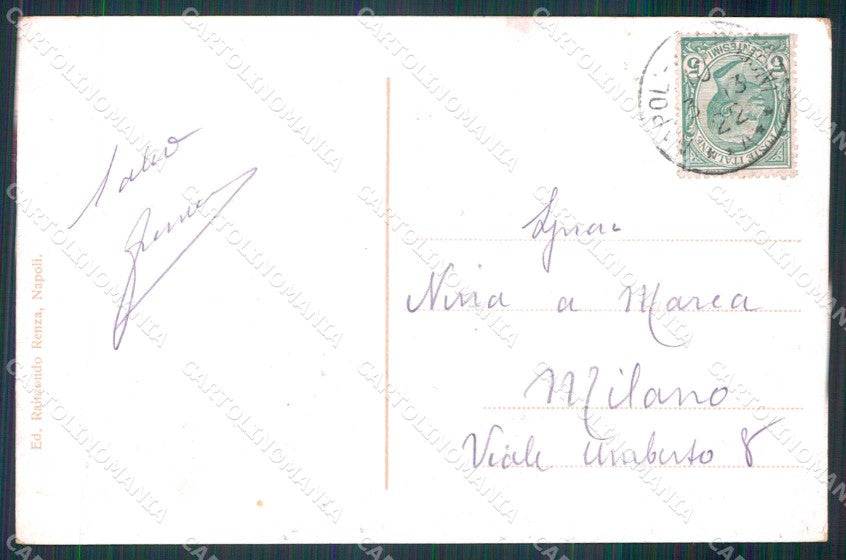 Saluti
Ed. Raimondo Renza, Napoli.
NAPOLI
3 13
22
CENTESIMI
5
POSTE ITALIANE
Nina a Marca
Milano
Viale Umberto 8
CARTOLINOMANIA